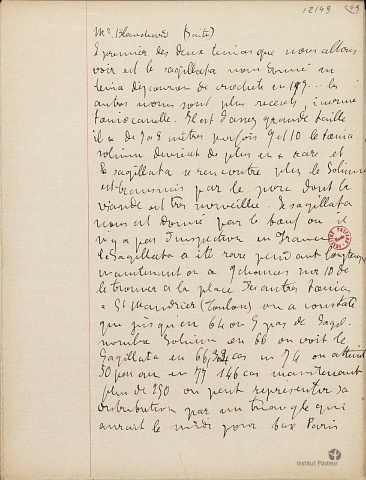 12149 49
Mr. Blanchard (suite)
Le premier des deux tenias que nous allons
voir est le sagillata nom donné au
tenia découvert de en 19... les
autres noms sont plus recents, inerme
tenia canelle. Il est d'assez grande taille
il a 7 a 8 mètres parfois 9 et 10 le taenia
solium devient de plus en + rare et
le sagillata se rencontre plus. le Solium
est transmis par le porc dont la
viande est très surveillée. Le sagillata
nous est donné par le bœuf ou il
n'y a pas d'inspection en France
le Sagillata a été rare pendant longtemps
maintenant on a 9 chances sur 10 de
le trouver a la place d'autres taenias
a St Mandrier (Toulon) on a constaté
que jusqu'en 64 on 5 pas de Sagil.
nombre Solium en 66 on voit le
Sagillata en 66, cas en 74 on atteint
50 par an en 77 146 cas maintenant
plus de 250 on peut représenter sa
distribution par un triangle qui
aurait le midi pour base Paris
INSTITUT PASTEUR
Institut Pasteur